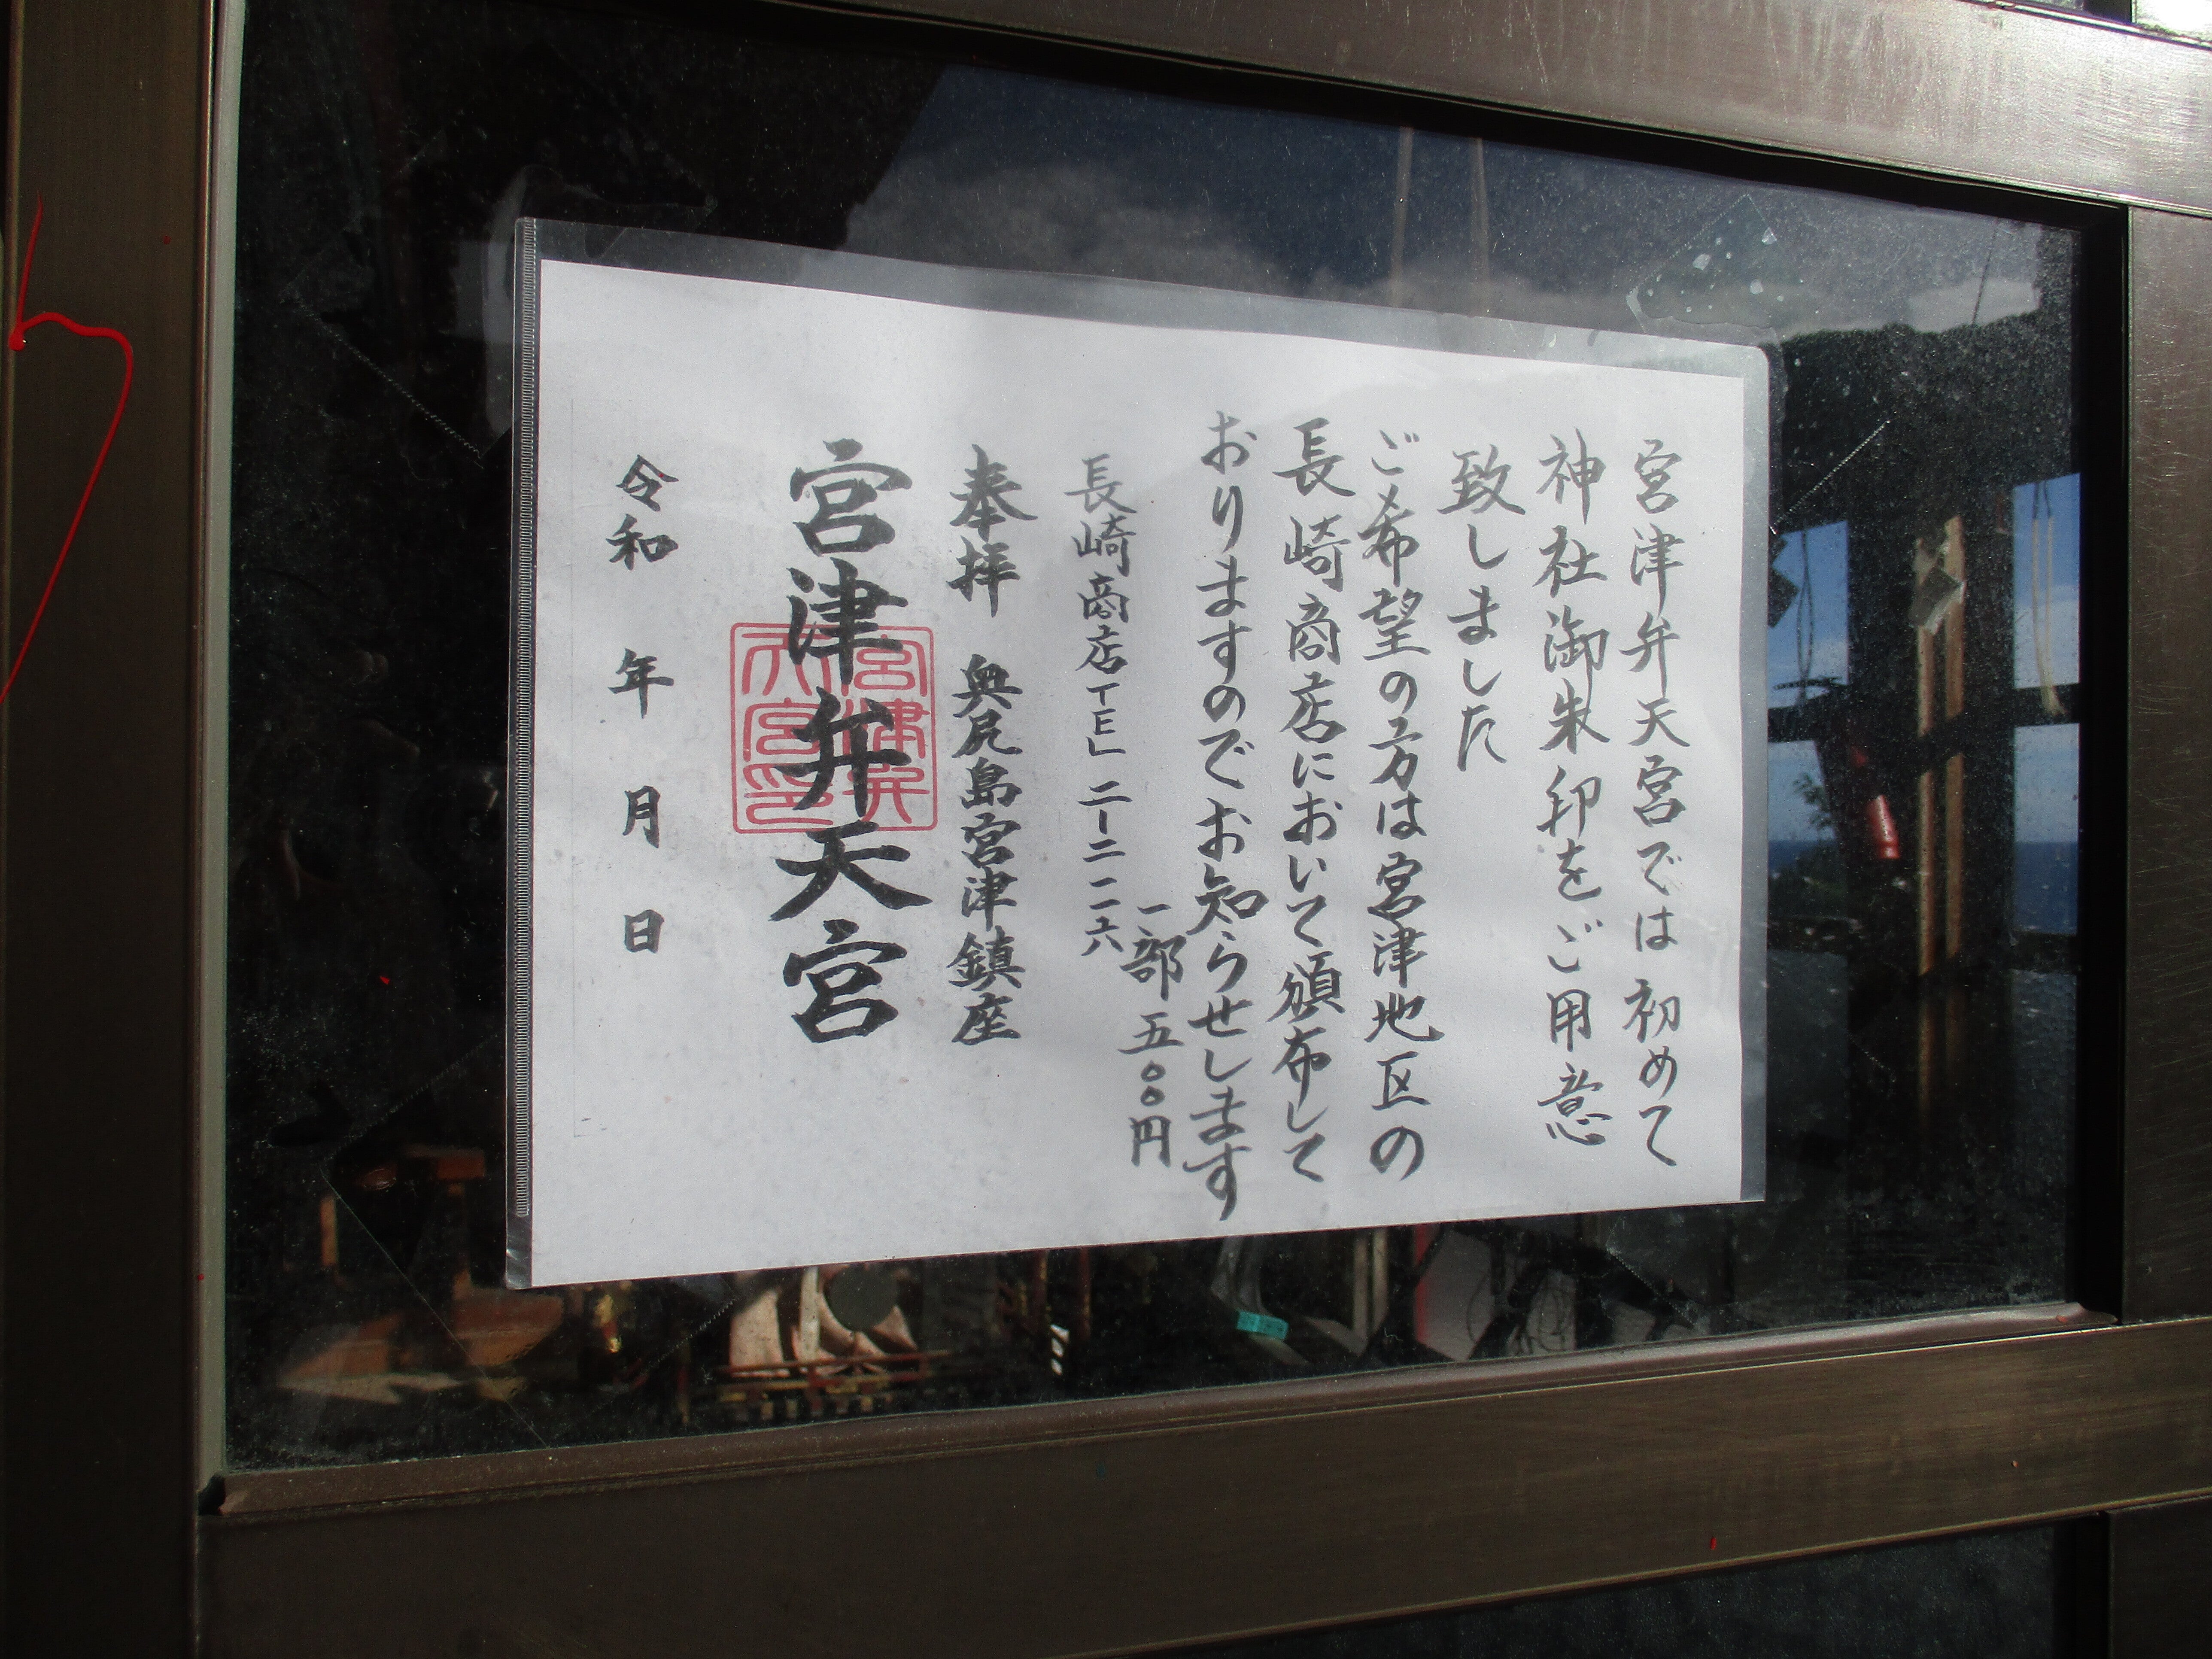 宮津弁天宮では初めて
神社御朱印をご用意
致しました
ご希望の方は宮津地区の
長崎商店において頒布して
おりますのでお知らせします
一部 五〇〇円
長崎商店TEL 二ー二二二六
奉拝 奥尻島宮津鎮座
宮津弁天宮
宮津弁
天宮印
令和 年 月 日